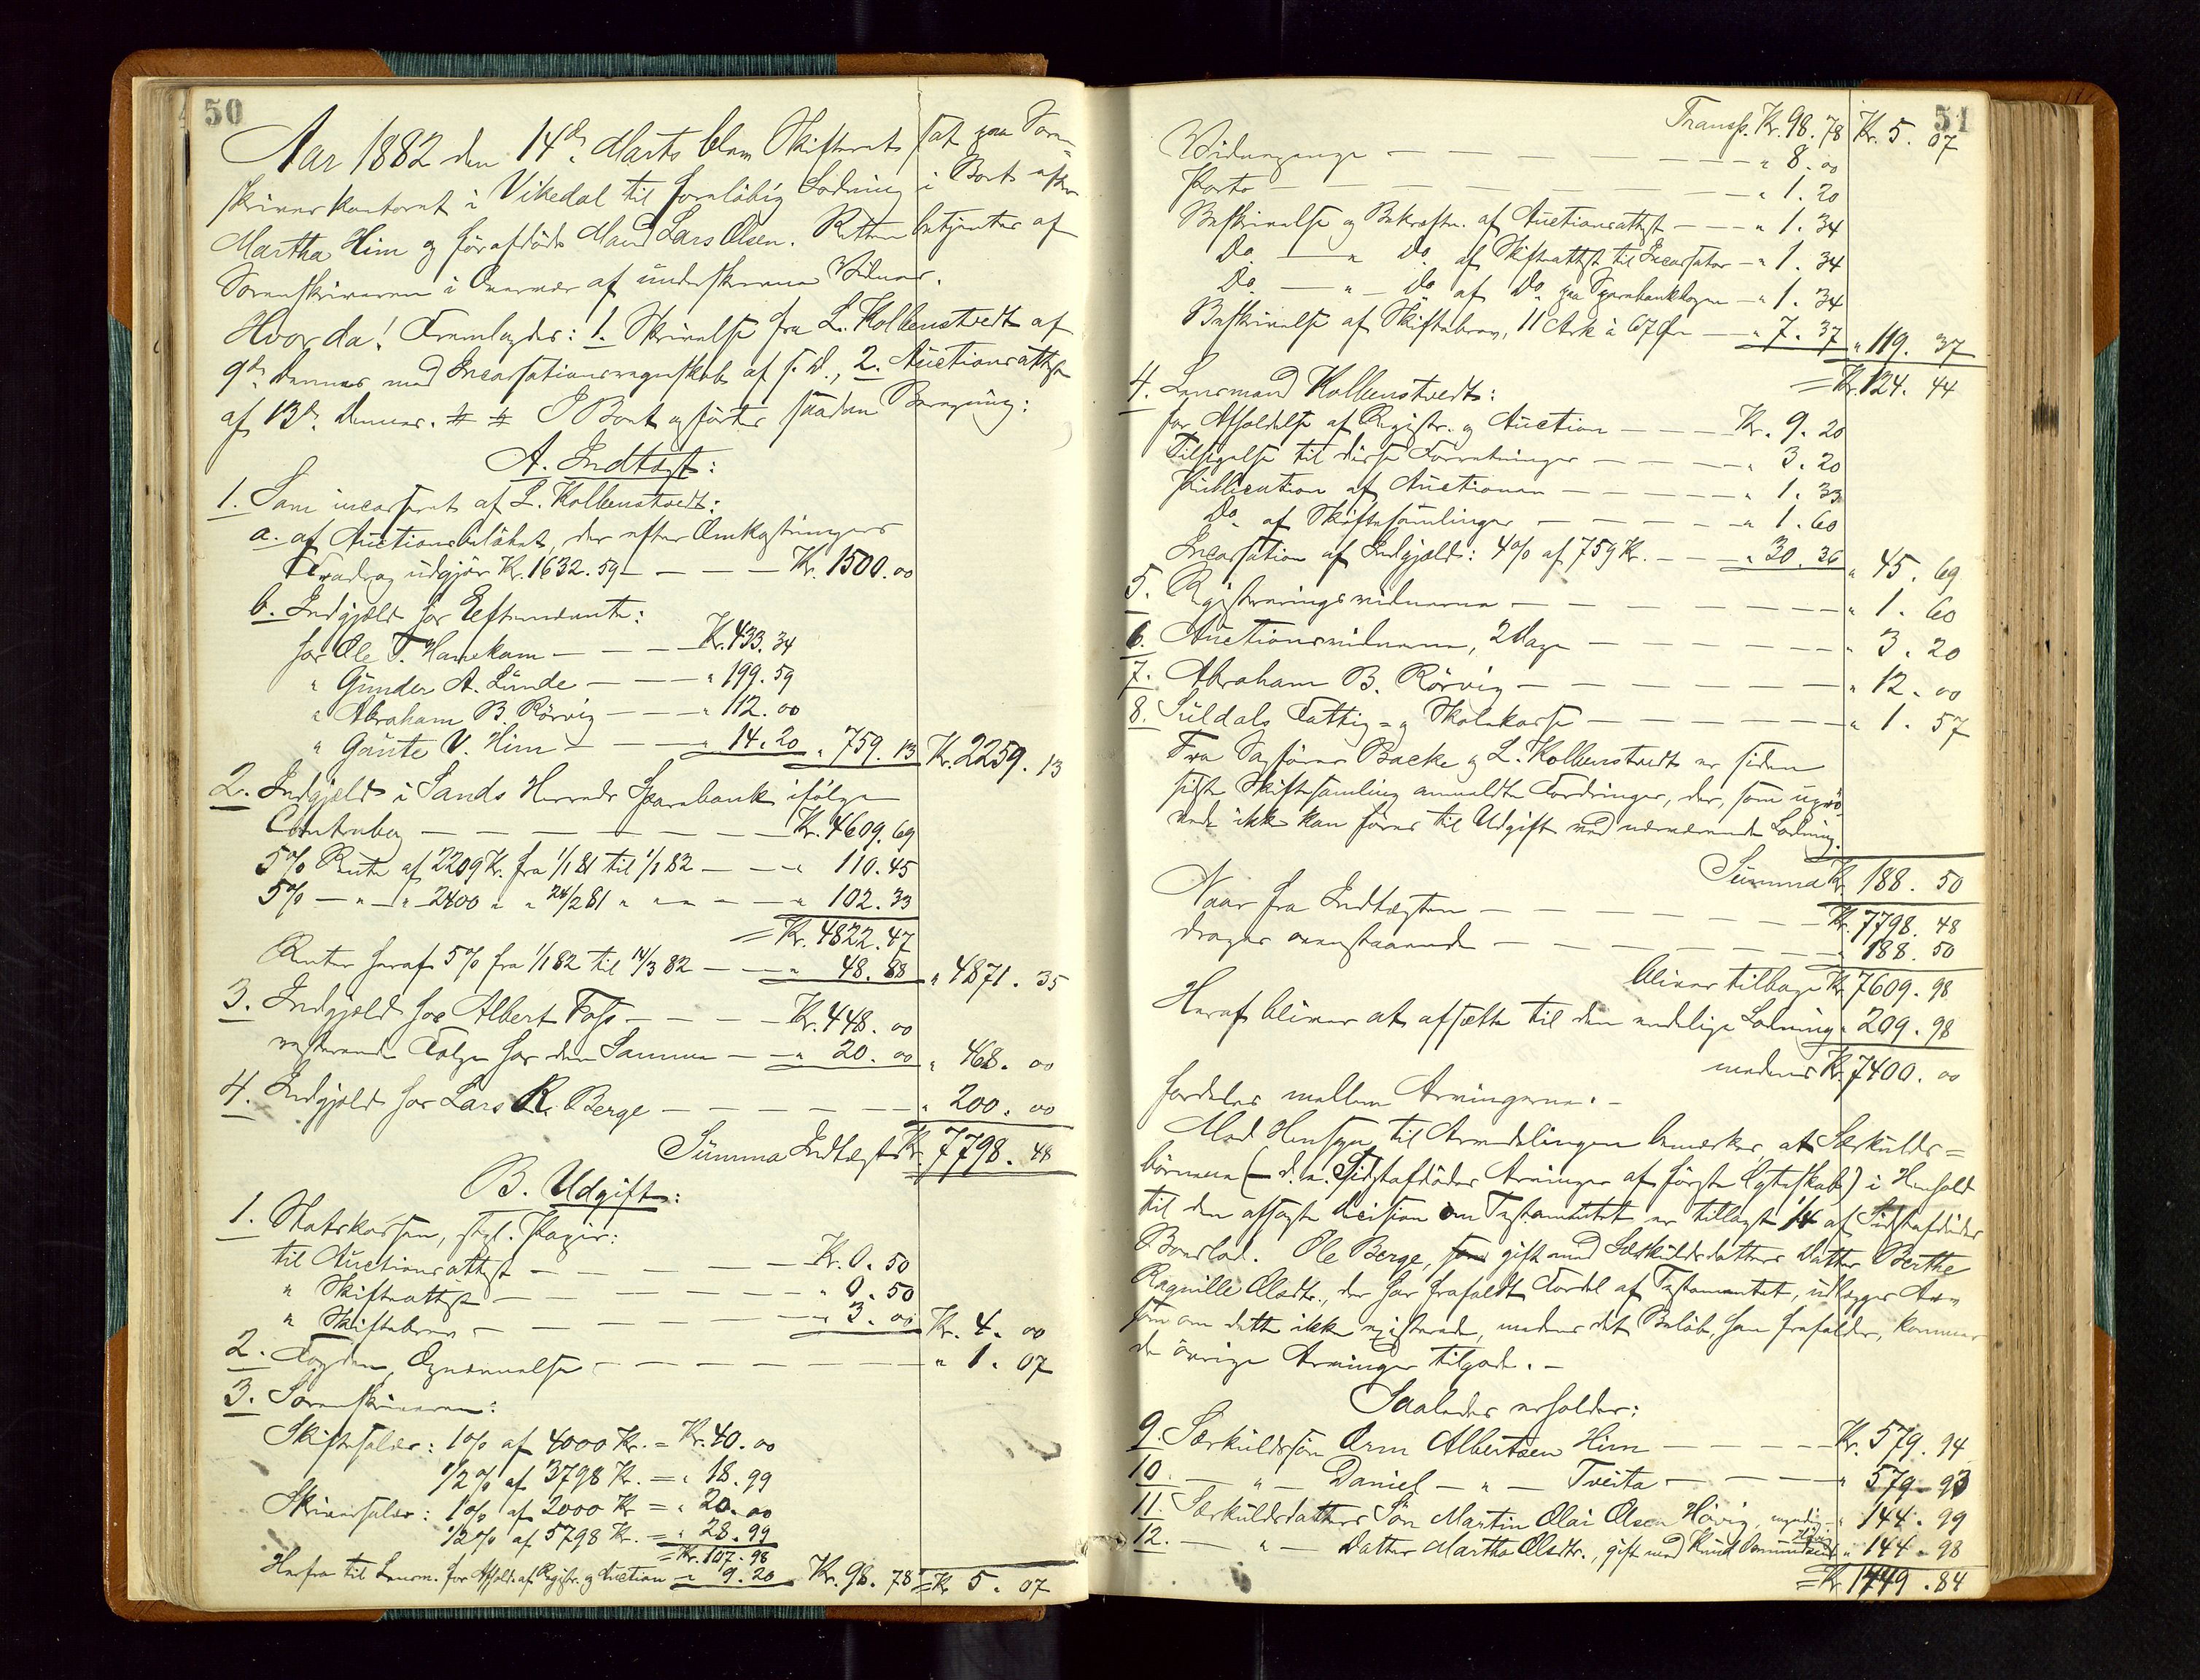 50
Aar 1882 den 14de Marts blev Skifteret sat paa Soren-
skriverkontoret i Vikedal til foreløbig Lodning i Boet efter
Martha Him og førafdøde Mand Lars Olsen. Retten betjentes af
Sorenskriveren i Overvær af underskrevne Vidner.
Hvorda! Fremlagdes: 1. Skrivelse fra L. Kolbenstvedt af
9de dennes med Incassationsregnskab af s. D., 2. Auctionsattest
af 13de dennes. # # I Boet opførtes saadan Beregning:
A. Indtægt:
1. Som incasseret af L. Kolbenstvedt:
a. af Auctionsbeløbet, der efter Omkostningers
Fradrag udgjør Kr. 1632.59 — — — Kr. 1500.00
b. Indgjæld hos Efternævnte:
hos Ole T. Hanekam — — — Kr. 433.34
" Gunder A. Lunde — — — " 199.59
" Abraham B. Rörvig — — — " 112.00
" Gaute V. Him — — — " 14.20 " 759.13 Kr. 2259.13
2. Indgjæld i Sands Herreds Sparebank ifølge
Contrabog — — — — — — Kr. 4609.69
5% Rente af 2209 Kr. fra 1/1 81 til 1/1 82 — — " 110.45
5% — " — " 2400 " " 24/2 81 " " — — — " 102.33
= Kr. 4822.47
Renter heraf 5% fra 1/1 82 til 14/3 82 — — " 48.88 " 4871.35
3. Indgjæld hos Albert Foss — — — Kr. 448.00
resterende Følge hos den Samme — — " 20.00 " 468.00
4. Indgjæld hos Lars R. Berge — — — — — " 200.00
Summa Indtægt Kr. 7798.48
B. Udgift:
1. Statskassen, stpl. Papir:
til Auctionsattest — — — — — Kr. 0.50
" Skifteattest — — — — — " 0.50
" Skiftebrev — — — — — " 3.00 Kr. 4.00
2. Fogden, Opnævnelse — — — — — " 1.07
3. Sorenskriveren:
Skiftesalær: 1% af 4000 Kr. = Kr. 40.00
1/2% af 3798 Kr. = " 18.99
Skriversalær: 1% af 2000 Kr = " 20.00
1/2% af 5798 Kr. = " 28.99
= Kr. 107.98
Herfra til Lensm. for Afhold. af Registr. og Auction — " 9.20 Kr. 98.78 = Kr 5.07
51
Transp. Kr. 98.78 Kr. 5.07
Vidnepenge — — — — — — — " 8.00
Porto — — — — — — — " 1.20
Beskrivelse og Bekræfte. af Auctionsattest — — — " 1.34
Do. — " Do. af Skifteattest til Incassator — " 1.34
Do. — " — Do. af Do. paa Sparebankbogen — " 1.34
Beskrivelse af Skiftebrev, 11 Ark à 67 Øre — " 7.37 " 119.37
= Kr. 124.44
4. Lensmand Kolbenstvedt:
for Afholdelse af Registr. og Auction — — — Kr. 9.20
Tilsigelse til disse Forretninger — — — — " 3.20
Publication af Auctionen — — — — — " 1.33
Do. af Skiftesamlinger — — — — — " 1.60
Incassation af Indgjæld: 4% af 759 Kr. — — " 30.36 " 45.69
5. Registreringsvidnerne — — — — — " 1.60
6. Auctionsvidnerne, 2 Dage — — — — — " 3.20
7. Abraham B. Rörvig — — — — — " 12.00
8. Suldals Fattig- og Skolekasse — — — — — " 1.57
Fra Sagfører Backe og L. Kolbenstvedt er siden
sidste Skiftesamling anmeldte Fordringer, der, som uprø-
vede ikke kan føres til Udgift ved nærværende Lodning.
Summa Kr. 188.50
Naar fra Indtægten — — — — — Kr. 7798.48
drages ovenstaaende — — — — — " 188.50
bliver tilbage Kr. 7609.98
Heraf bliver at afsætte til den endelige Lodning " 209.98
medens Kr. 7400.00
fordeles mellem Arvingerne. —
Med Hensyn til Arvedelingen bemærkes, at Særkulds-
börnene (— d. e. Sidstafdødes Arvinger af første Ægteskab) i Henhold
til den afsagte Decision om Testamentet er tillagt 1/4 af Sidstafdødes
Boeslod. Ole Berge, gift med Særkuldsdatters Datter Berthe
Ragnille Olsdtr., der har frafaldt Fordel af Testamentet, udlægges Arv
som om dette ikke existerede, medens det Beløb, han frafalder, kommer
de övrige Arvinger tilgode. —
Saaledes erholder:
9. Særkuldssøn Orm Albertsen Him — — — — Kr. 579.94
10. — " — Daniel — " — Tveita — — — " 579.93
11. Særkuldsdatters Søn Martin Olai Olsen Hövig, umyndig — " 144.99
12. — " — Datter Martha Olsdtr., gift med Knud Osmundsen Hövig " 144.98
= Kr. 1449.84